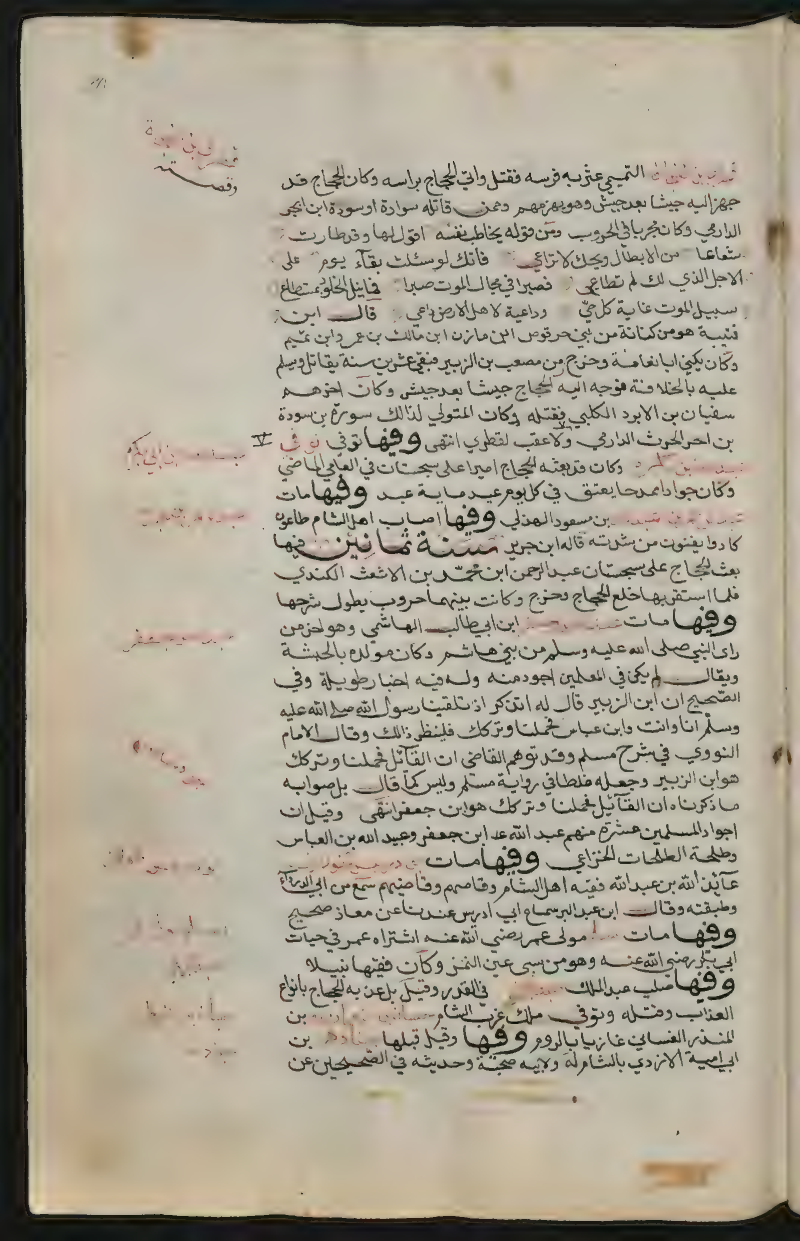 التميمي عثر به فرسه فقتل واتي الحجاج براسه وكان الحجاج قد
جهز اليه جيشا بعد جيش وهو يهزمهم وممن قاتله سوارة او سورة ابن ابجر
الدارمي وكان مجربا في الحروب ومن قوله يخاطب نفسه اقول لها وقد طارت
شعاعا من الابطال ويحك لا تراعي فانك لو سئلت بقآء يوم على
الاجل الذي لك لم تطاعي فصبرا في مجال الموت صبرا فما نيل الخلود بمستطاع
سبيل الموت غاية كل حي وداعيه لاهل الارض داعي قال ابن
قتيبة هو من كنانة من بني حرقوص ابن مازن ابن مالك بن عمر وابن تميم
وكان يكنى ابا نعامة وخرج من مصعب بن الزبير فبقي عشرين سنة يقاتل ويسلم
عليه بالخلافة فوجه اليه الحجاج جيشا بعد جيش وكان اخرهم
سفيان بن الابرد الكلبي فقتله وكان المتولي لذالك سورة بن سورة
بن احر الحرث الدارمي ولا عقب لقطري انتهى وفيها توفي
وكان قد بعثه الحجاج اميرا على سجستان في العام الماضي
وكان جوادا ممدحا يعتق في كل يوم عيد ماية عبد وفيها مات
بن مسعود الهذلي وفيها اصاب اهل الشام طاعون
كادوا يفنون من شدته قاله ابن جرير سنة ثمانين فيها
بعث الحجاج على سجستان عبد الرحمن ابن محمد بن الاشعث الكندي
فلما استقر بها خلع الحجاج وخرج وكانت بينهما حروب يطول شرحها
وفيها مات ابن ابي طالب الهاشمي وهو اخر من
راى النبي صلى الله عليه وسلم من بني هاشم وكان مولده بالحبشة
ويقال لم يكن في المسلمين اجود منه وله فيه اخبار طويلة وفي
الصحيح ان ابن الزبير قال له اتذكر اذ تلقينا رسول الله صلى الله عليه
وسلم انا وانت وابن عباس فحملنا وتركك فلينظر ذالك وقال الامام
النووي في شرح مسلم وقد توهم القاضي ان القآئل فحملنا وتركك
هو ابن الزبير وجعله غلطا في رواية مسلم وليس كما قال بل صوابه
ما ذكرناه ان القآئل فحملنا وتركك هو ابن جعفر انتهى وقيل ان
اجواد المسلمين عشرة منهم عبد الله ابن جعفر وعبيد الله بن العباس
وطلحة الطلحات الخزاعي وفيها مات
عآيذ الله بن عبد الله فقيه اهل الشام وقاصهم وقاضيهم سمع من ابي الدرداء
وطبقته وقال ابن عبد البر سماع ابي ادريس عندنا عن معاذ صحيح
وفيها مات مولى عمر رضي الله عنه اشتراه عمر في حيات
ابي بكر رضي الله عنه وهو من سبي عين التمر وكان فقيها نبيلا
وفيها صلب عبد الملك في القدر وقيل بل عذبه الحجاج بانواع
العذاب وقتله وتوفي ملك عرب الشام بن
المنذر الغساني غازيا بالروم وفيها وقيل قبلها بن
ابي امية الازدي بالشام له ولابيه صحبة وحديثه في الصحيحين عن
وقصته